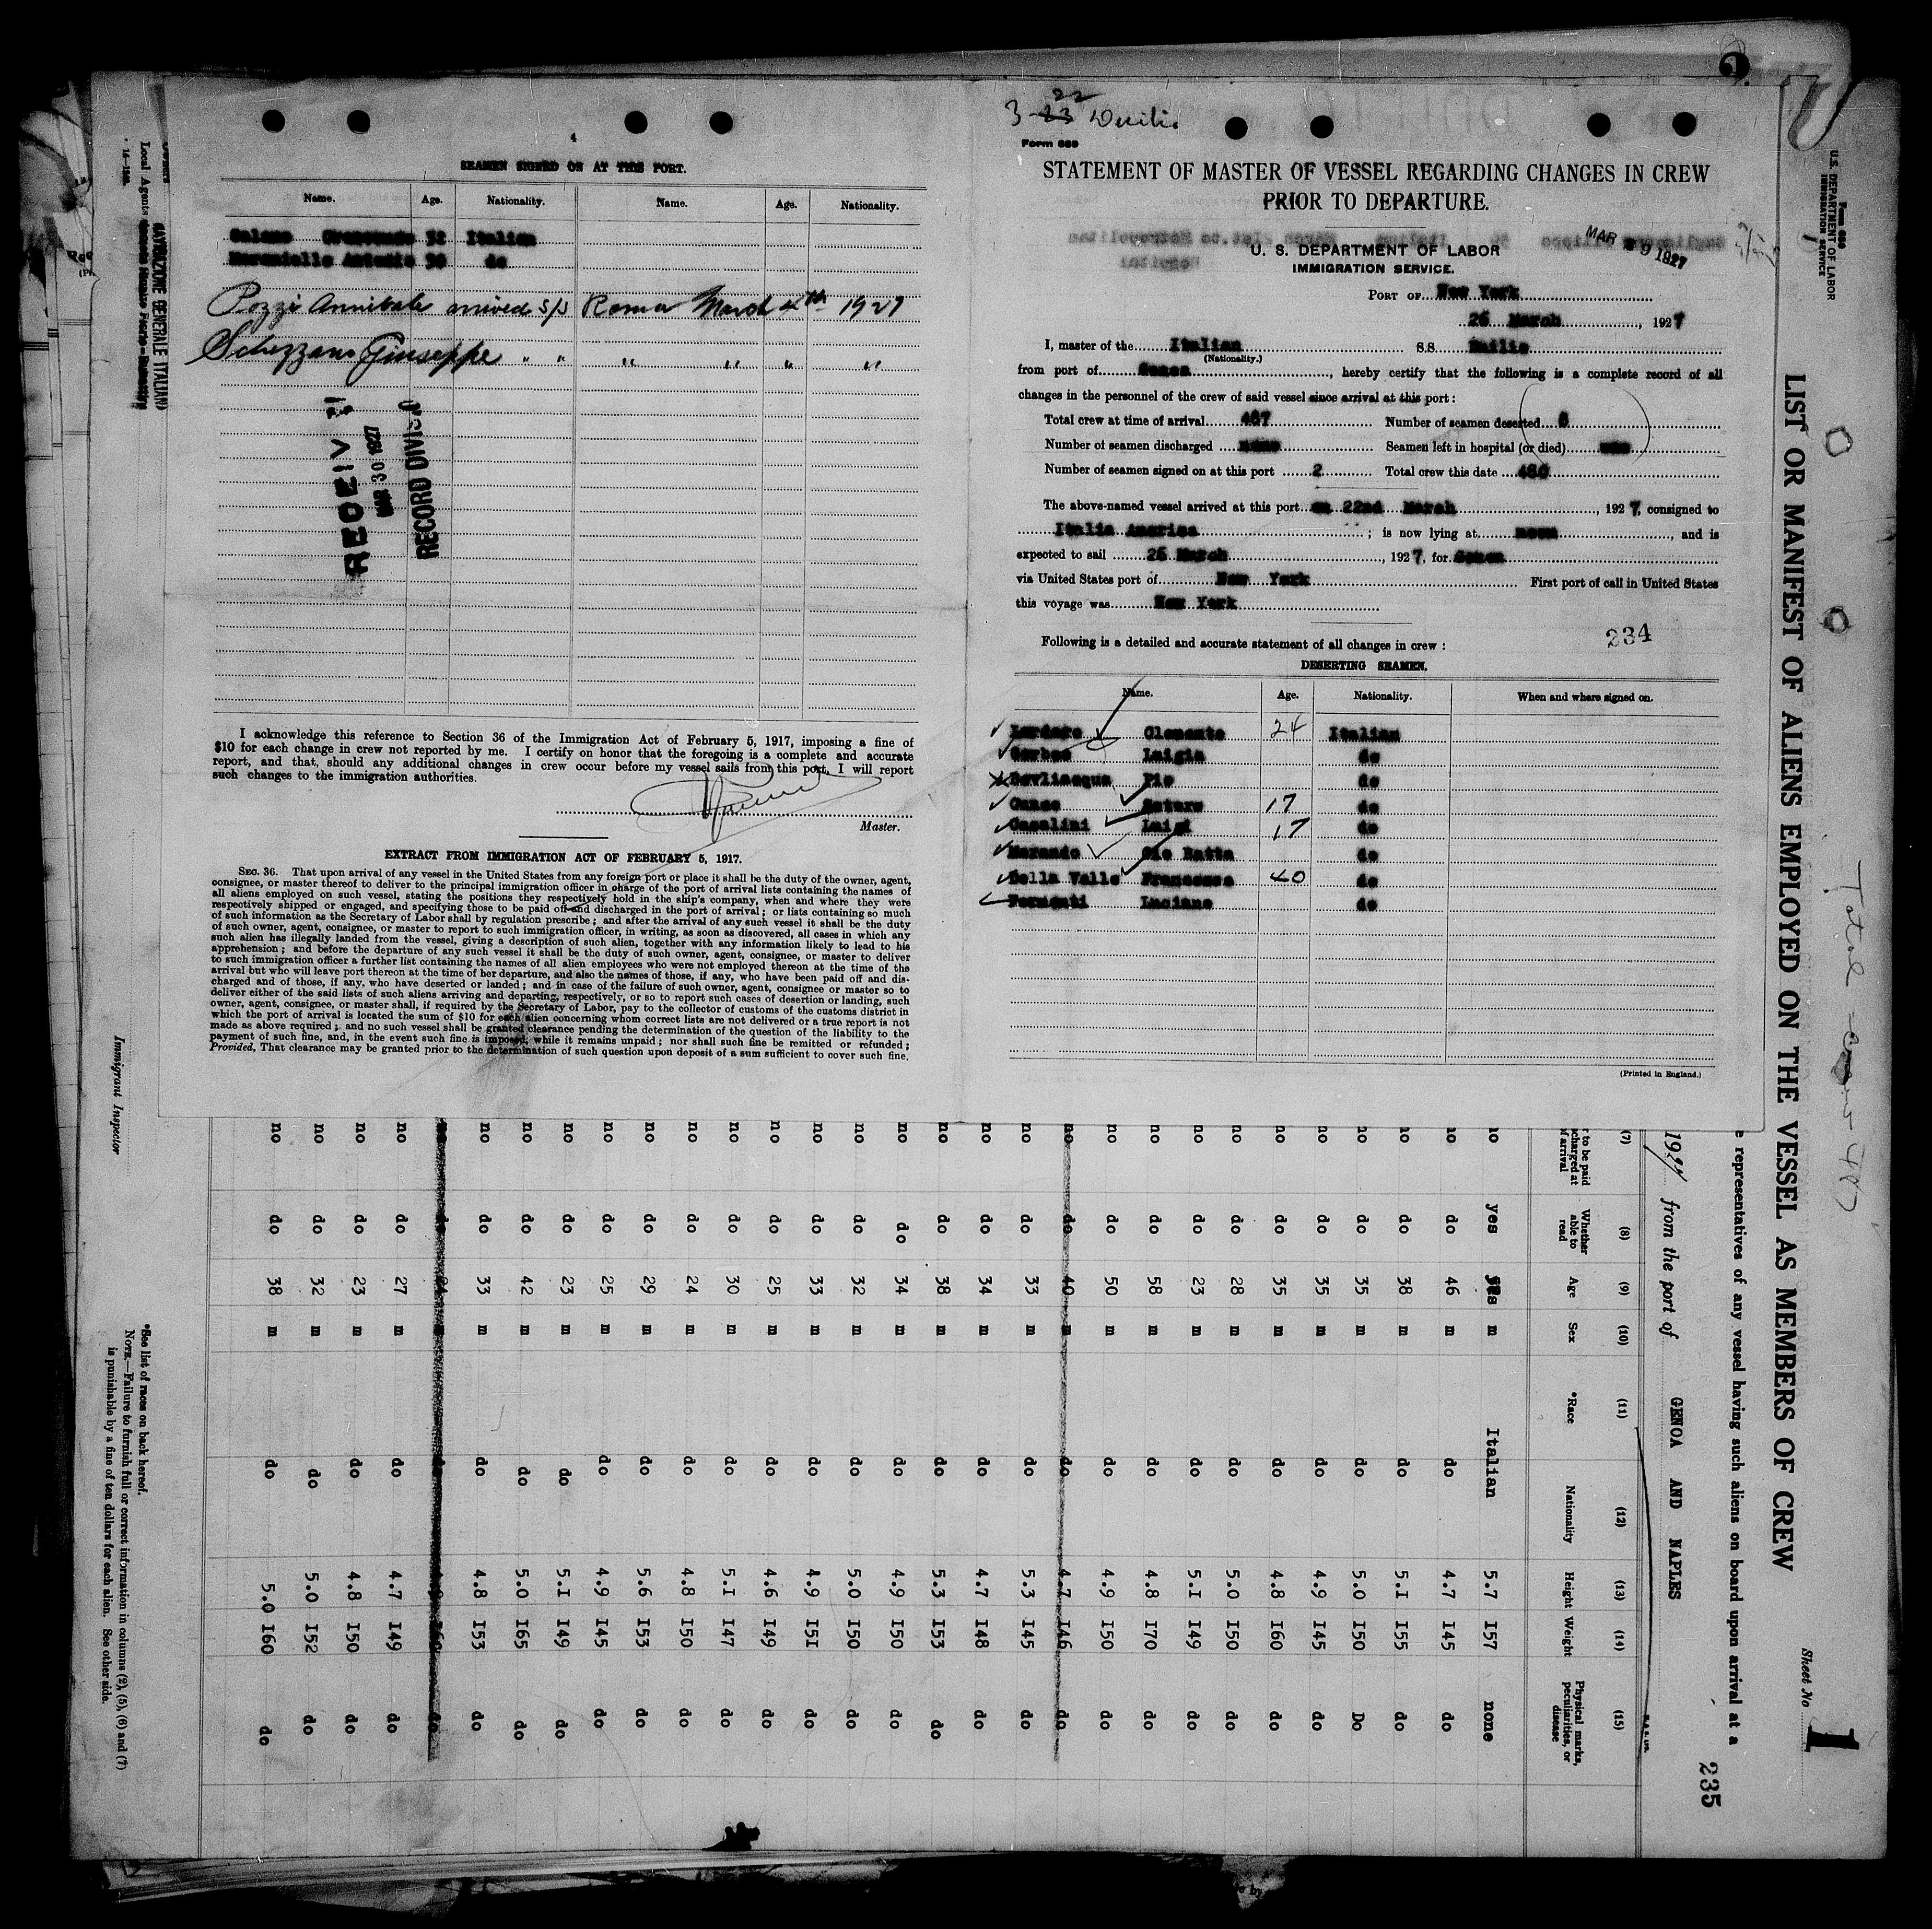 4
SEAMEN SIGNED ON AT THIS PORT.
Name. Age. Nationality. Name. Age. Nationality.
Salamo 32 Italian
Antonio 30 do
Pozzi Annibale arrived S/S Roma March 4th 1927
Schezzano Giuseppe " " " " " "
RECEIV
MAR 30 1927
RECORD DIVISIO
I acknowledge this reference to Section 36 of the Immigration Act of February 5, 1917, imposing a fine of
$10 for each change in crew not reported by me. I certify on honor that the foregoing is a complete and accurate
report, and that, should any additional changes in crew occur before my vessel sails from this port, I will report
such changes to the immigration authorities.
Master.
EXTRACT FROM IMMIGRATION ACT OF FEBRUARY 5, 1917.
SEC. 36. That upon arrival of any vessel in the United States from any foreign port or place it shall be the duty of the owner, agent,
consignee, or master thereof to deliver to the principal immigration officer in charge of the port of arrival lists containing the names of
all aliens employed on such vessel, stating the positions they respectively hold in the ship's company, when and where they were
respectively shipped or engaged, and specifying those to be paid off and discharged in the port of arrival; or lists containing so much
of such information as the Secretary of Labor shall by regulation prescribe; and after the arrival of any such vessel it shall be the duty
of such owner, agent, consignee, or master to report to such immigration officer, in writing, as soon as discovered, all cases in which any
such alien has illegally landed from the vessel, giving a description of such alien, together with any information likely to lead to his
apprehension; and before the departure of any such vessel it shall be the duty of such owner, agent, consignee, or master to deliver
to such immigration officer a further list containing the names of all alien employees who were not employed thereon at the time of the
arrival but who will leave port thereon at the time of her departure, and also the names of those, if any, who have been paid off and dis-
charged and of those, if any, who have deserted or landed; and in case of the failure of such owner, agent, consignee or master so to
deliver either of the said lists of such aliens arriving and departing, respectively, or so to report such cases of desertion or landing, such
owner, agent, consignee, or master shall, if required by the Secretary of Labor, pay to the collector of customs of the customs district in
which the port of arrival is located the sum of $10 for each alien concerning whom correct lists are not delivered or a true report is not
made as above required; and no such vessel shall be granted clearance pending the determination of the question of the liability to the
payment of such fine, and, in the event such fine is imposed, while it remains unpaid; nor shall such fine be remitted or refunded;
Provided, That clearance may be granted prior to the determination of such question upon deposit of a sum sufficient to cover such fine.
3-23 22 Duilio
Form 689
STATEMENT OF MASTER OF VESSEL REGARDING CHANGES IN CREW
PRIOR TO DEPARTURE.
U. S. DEPARTMENT OF LABOR
IMMIGRATION SERVICE.
MAR 29 1927
PORT OF New York
26 March, 1927
I, master of the Italian S.S. Duilio
(Nationality.)
from port of Genoa, hereby certify that the following is a complete record of all
changes in the personnel of the crew of said vessel since arrival at this port:
Total crew at time of arrival 487 Number of seamen deserted 8
Number of seamen discharged none Seamen left in hospital (or died) one
Number of seamen signed on at this port 2 Total crew this date 480
The above-named vessel arrived at this port on 22nd March, 1927, consigned to
Italia America; is now lying at noon, and is
expected to sail 26 March, 1927, for Genoa
via United States port of New York First port of call in United States
this voyage was New York
Following is a detailed and accurate statement of all changes in crew:
234
DESERTING SEAMEN.
Name. Age. Nationality. When and where signed on.
Clemente 24 Italian
Luigia do
Bevilacqua Pio do
Cuneo 17 do
Casalini Luigi 17 do
Morando Gio Batta do
Della Valle Francesco 40 do
Luciano do
(Printed in England.)
Form 689
U.S. DEPARTMENT OF LABOR
IMMIGRATION SERVICE
LIST OR MANIFEST OF ALIENS EMPLOYED ON THE VESSEL AS MEMBERS OF CREW
Total Crew 487
Sheet No 1
235
e representatives of any vessel having such aliens on board upon arrival at a
1927 from the port of GENOA AND NAPLES
(7) (8) (9) (10) (11) (12) (13) (14) (15)
r to be paid charged at of arrival Whether able to read Age Sex *Race Nationality Height Weight Physical marks, peculiarities, or disease
no yes yes m Italian 5.7 157 none
no do 46 m do 4.7 145 do
no do 38 m do 5.1 155 do
no do 35 m do 5.0 150 Do
no do 35 m do 4.9 145 do
no do 35 m do 4.8 160 do
no do 28 m do 5.0 150 do
no do 23 m do 5.1 149 do
no do 58 m do 4.8 170 do
no do 50 m do 4.9 150 do
no do 40 m do 4.7 146 do
no do 33 m do 5.3 145 do
no do 34 m do 4.7 148 do
no do 38 m do 5.3 153 do
no do 34 m do 4.9 150 do
no do 32 m do 5.0 150 do
no do 33 m do 4.9 151 do
no do 25 m do 4.6 149 do
no do 30 m do 5.1 147 do
no do 24 m do 4.8 150 do
no do 29 m do 5.6 153 do
no do 25 m do 4.9 145 do
no do 23 m do 5.1 149 do
no do 42 m do 5.0 165 do
no do 33 m do 4.8 153 do
no do 27 m do 4.7 149 do
no do 23 m do 4.8 150 do
no do 32 m do 5.0 152 do
no do 38 m do 5.0 160 do
*See list of races on back hereof.
NOTE.—Failure to furnish full or correct information in columns (2), (5), (6) and (7)
is punishable by a fine of ten dollars for each alien. See other side.
Immigrant Inspector
NAVIGAZIONE GENERALE ITALIANA
Local Agents
14—1240.